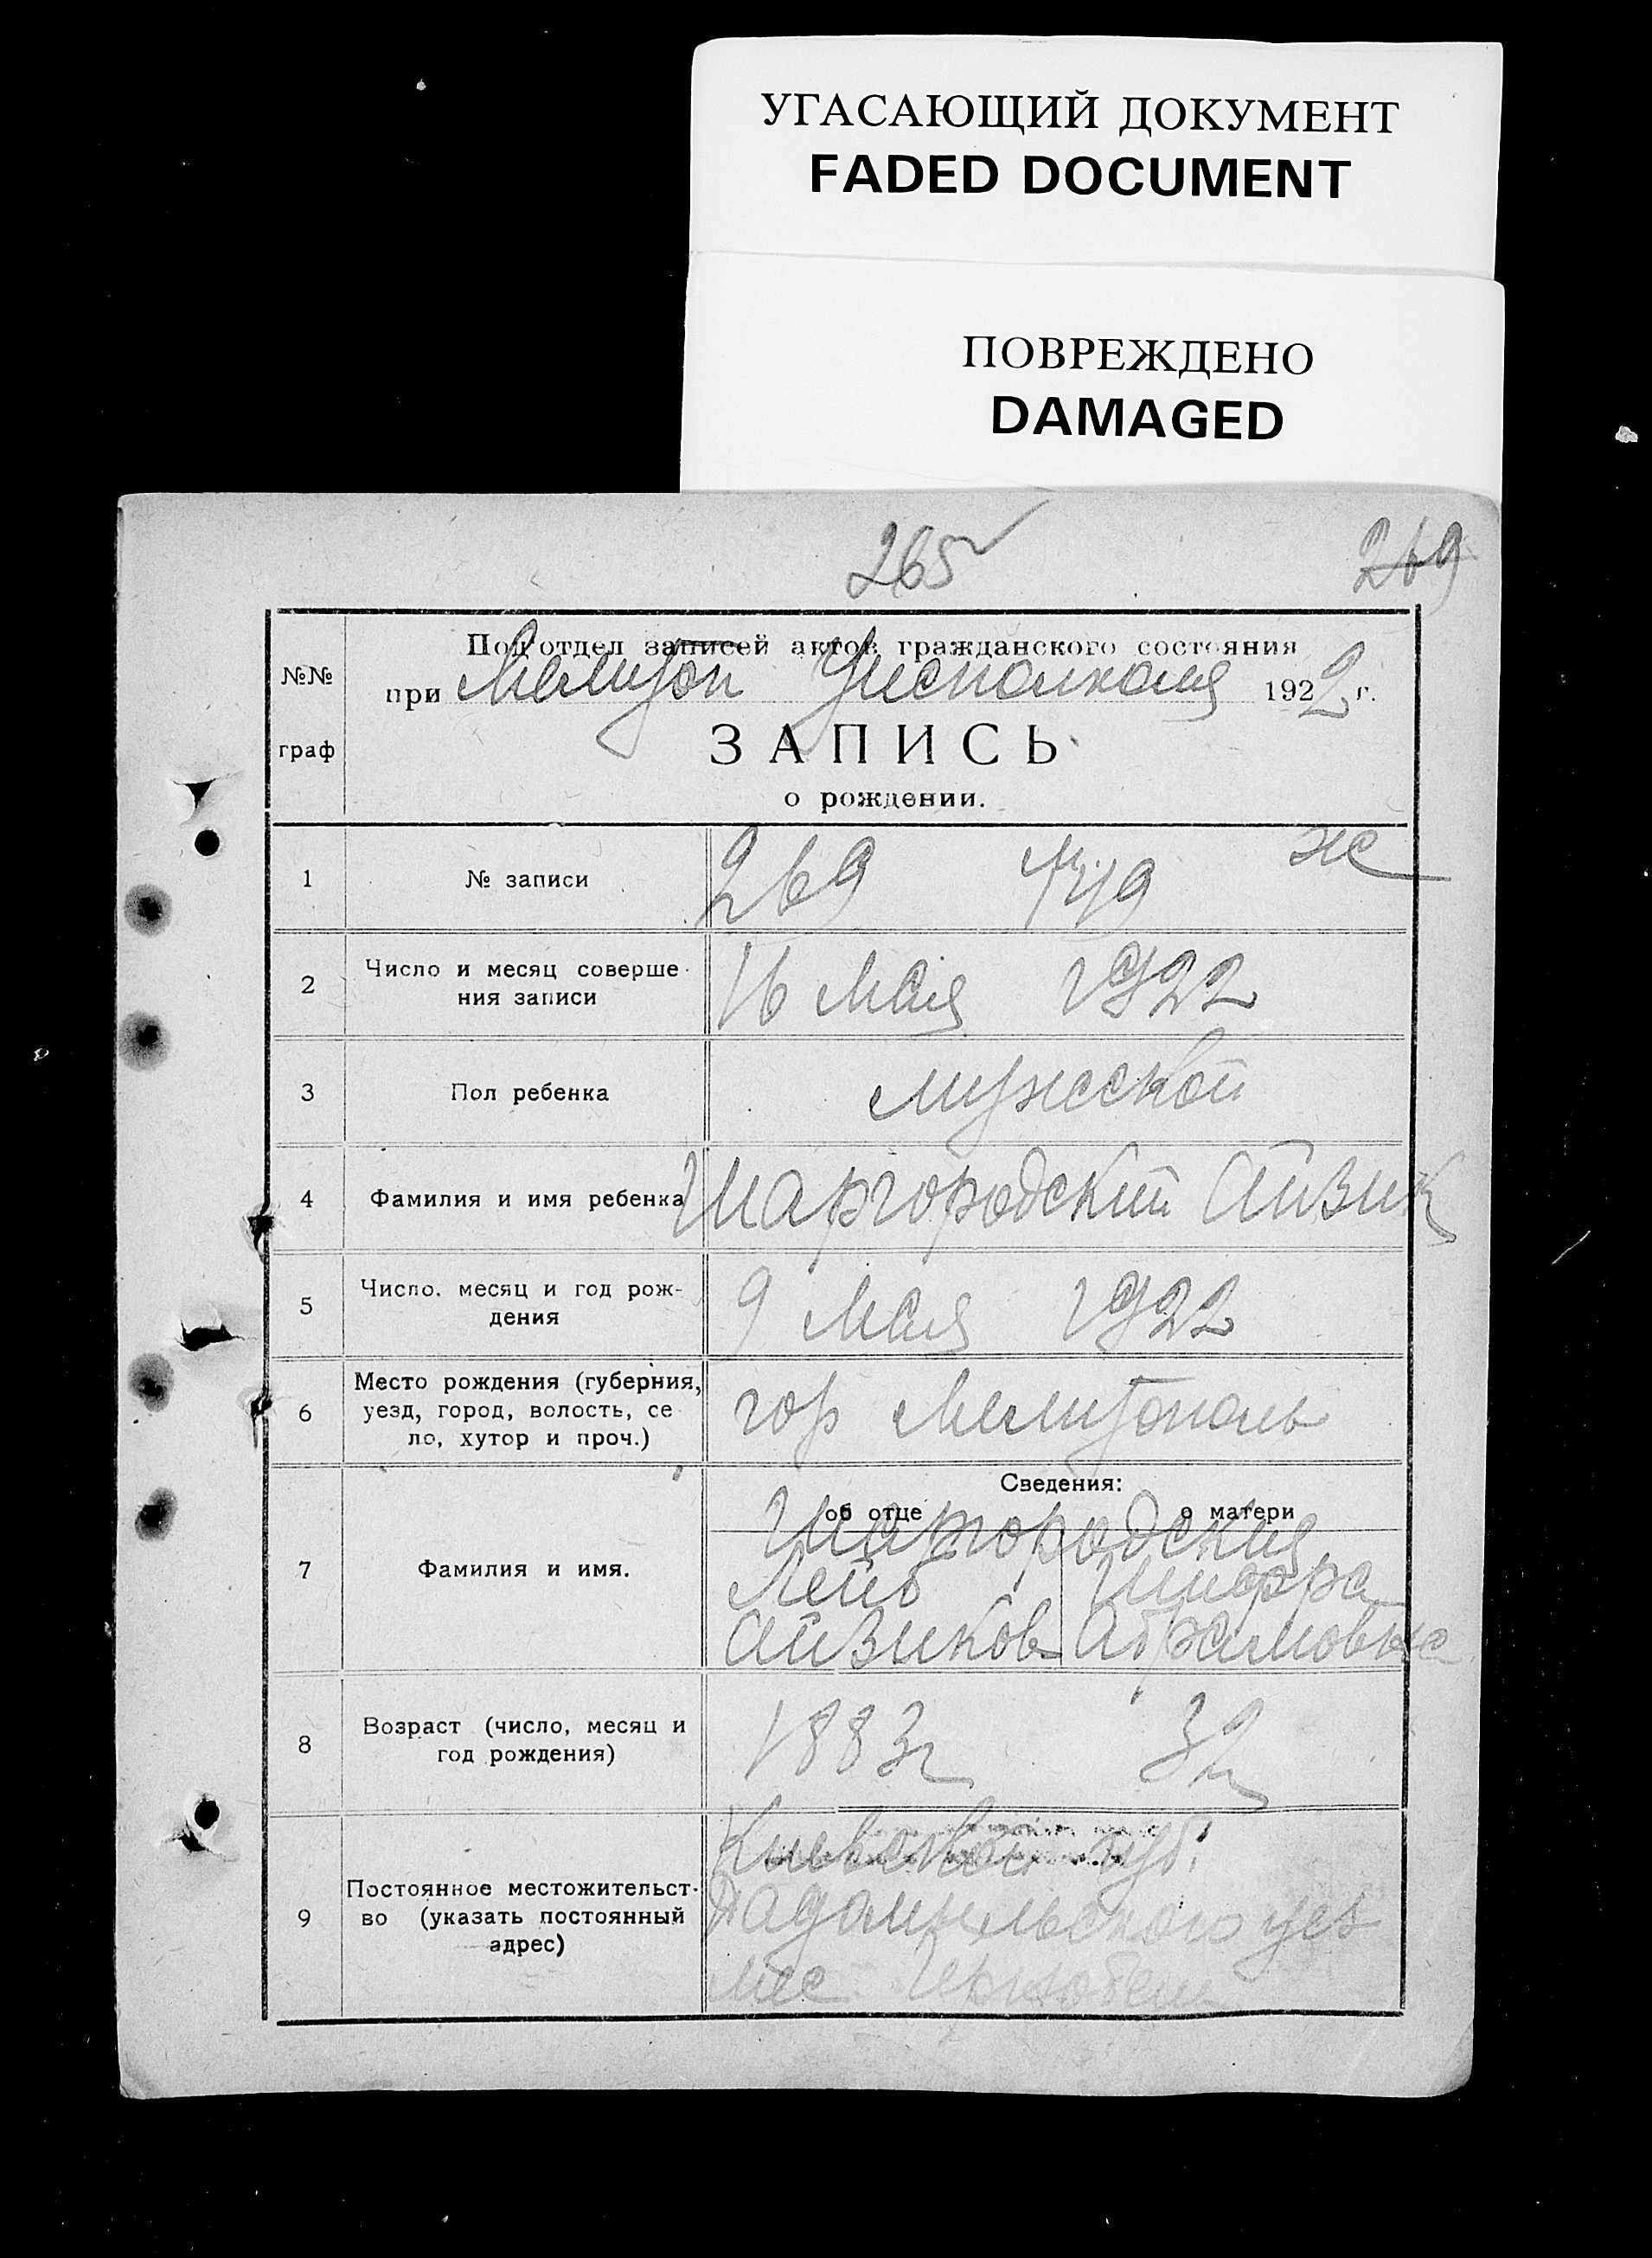 УГАСАЮЩИЙ ДОКУМЕНТ
FADED DOCUMENT
ПОВРЕЖДЕНО
DAMAGED
265 269
Подотдел записей актов гражданского состояния
№№ при Мелитоп Уисполкома 1922 г.
граф ЗАПИСЬ
о рождении.
1 № записи 269
2 Число и месяц соверше
ния записи 16 Мая 1922
3 Пол ребенка мужской
4 Фамилия и имя ребенка Шаргородский Айзик
5 Число, месяц и год рож-
дения 9 Мая 1922
Место рождения (губерния,
6 уезд, город, волость, се гор Мелитополь
ло, хутор и проч.)
Сведения:
об отце о матери
Шаргородския
7 Фамилия и имя. Лейб Шифра
Айзиков Абрамовна
8 Возраст (число, месяц и
год рождения) 1883г 32
Киевской губ.
Постоянное местожительст-
9 во (указать постоянный уез
адрес)
мес